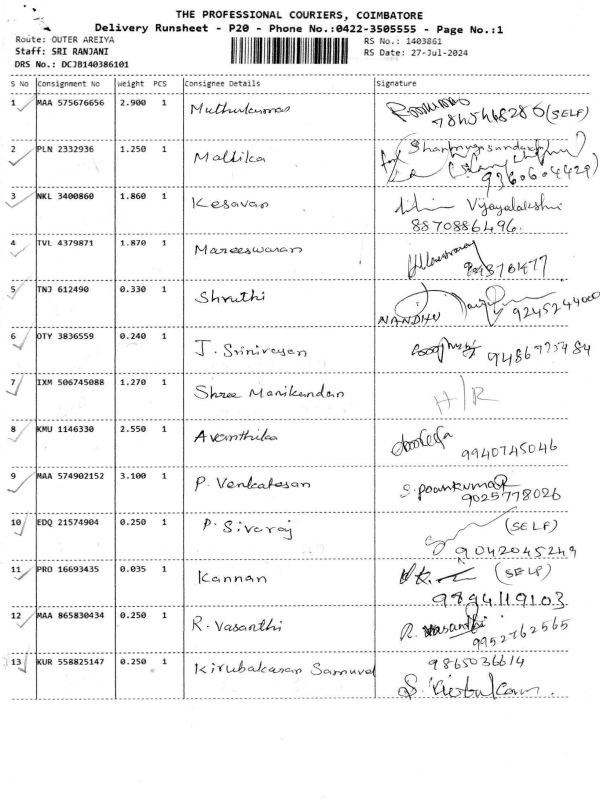 THE PROFESSIONAL COURIERS, COIMBATORE
Delivery Runsheet - P20 - Phone No.:0422-3505555 - Page No.:1
Route: OUTER AREIYA RS No.: 1403861
Staff: SRI RANJANI RS Date: 27-Jul-2024
DRS No.: DCJB140386101
S No Consignment No Weight PCS Consignee Details Signature
1 MAA 575676656 2.900 1 Muthukumar (SELF)
2 PLN 2332936 1.250 1 Mallika for
9360604429)
3 NKL 3400860 1.860 1 Kesavan Vijayalakshmi
8870886496
4 TVL 4379871 1.870 1 Mareeswaran
5 TNJ 612490 0.330 1 Shruthi
NANDHU
6 OTY 3836559 0.240 1 J. Srinivasan 9486925484
7 IXM 506745088 1.270 1 Shree Manikandan H/R
8 KMU 1146330 2.550 1 Avanthika
9940745046
9 MAA 574902152 3.100 1 P. Venkatesan S. Poonkumar
9025778026
10 EDQ 21574904 0.250 1 P. Sivaraj (SELF)
9042045249
11 PRO 16693435 0.035 1 Kannan (SELF)
9894119103
12 MAA 865830434 0.250 1 R. Vasanthi R. Vasandhi
9952762565
13 KUR 558825147 0.250 1 Kirubakaran Samuvel 9865036614